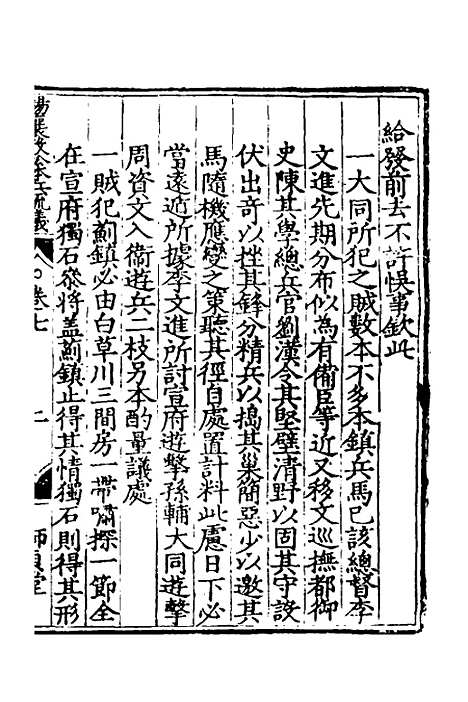 給發前去不許悞事欽此
一大同所犯之賊數本不多本鎮兵馬已該總督李
文進先期分布似為有備臣等近又移文巡撫都御
史陳其學總兵官劉漢令其堅壁清野以固其守設
伏出奇以挫其鋒分精兵以搗其巢簡惡少以邀其
馬隨機應變之策聽其徑自處置計料此慮日下必
當遠遁所據李文進所討宣府遊擊孫輔大同遊擊
周咨文入衞遊兵二枝另本酌量議處
一賊犯薊鎮必由白草川三間房一帶哨探一節全
在宣府獨石叅將盖薊鎮止得其情獨石則得其形
卷七
二